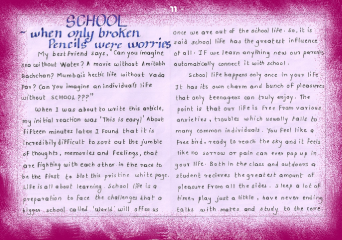 11
SCHOOL
- when only broken
Pencils were worries
My best friend says, "Can you imagine
sea without Water? A movie without Amitabh
Bachchan? Mumbai hectic life without Vada
Pav? Can you imagine an individual's life
without SCHOOL???"
When I was about to write this article,
my initial reaction was 'This is easy!' About
fifteen minutes later I found that it is
incredibly difficult to sort out the jumble
of thoughts, memories and feelings, that
are fighting with each other in the race to
be the first to blot this pristine white page.
Life is all about learning. School life is a
preparation to face the challenges that a
bigger school called 'World' will offer us
once we are out of the school life. So, it is
said school life has the greatest influence
of all. If we learn anything new our parents
automatically connect it with school.
School life happens only once in your life.
It has its own charm and bunch of pleasures
that only teenagers can truly enjoy. The
point is that our life is free from various
anxieties, troubles which usually falls to
many common individuals. You feel like a
free bird, ready to reach the sky and it feels
like no sorrow or pain can ever pop up in
your life. Both in the class and outdoors a
student receives the greatest amount of
pleasure from all the sides. I sleep a lot of
times, play just a little, have never ending
talks with mates and study to the core.